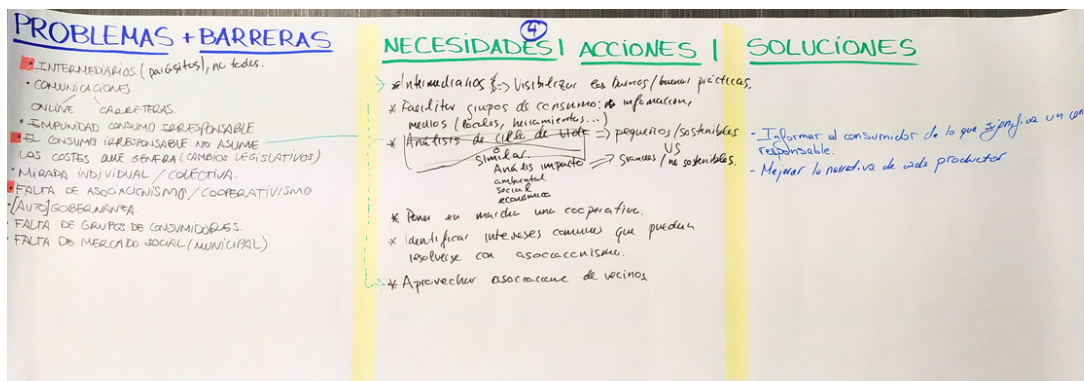 4
PROBLEMAS + BARRERAS
• INTERMEDIARIOS (parásitos), no todos.
• COMUNICACIONES
ONLINE CARRETERAS.
• IMPUNIDAD CONSUMO IRRESPONSABLE
• EL CONSUMO IRRESPONSABLE NO ASUME
LOS COSTES QUE GENERA (CAMBIOS LEGISLATIVOS)
• MIRADA INDIVIDUAL / COLECTIVA.
• FALTA DE ASOCIACIONISMO / COOPERATIVISMO
• [AUTO]GOBERNANZA
• FALTA DE GRUPOS DE CONSUMIDORES.
• FALTA DE MERCADO SOCIAL (MUNICIPAL)
NECESIDADES | ACCIONES |
* Intermediarios => Visibilizar los buenos/buenas prácticas.
* Facilitar grupos de consumo: información,
medios (locales, herramientas...)
* Análisis de ciclo de vida => pequeños/sostenibles
o similar VS
Análisis impacto => grandes / no sostenibles.
ambiental
social
económico
* Poner en marcha una cooperativa.
* Identificar intereses comunes que puedan
resolverse con asociacionismo.
* Aprovechar asociaciones de vecinos.
SOLUCIONES
- Informar al consumidor de lo que significa un
responsable.
- Mejorar la narrativa de cada productor